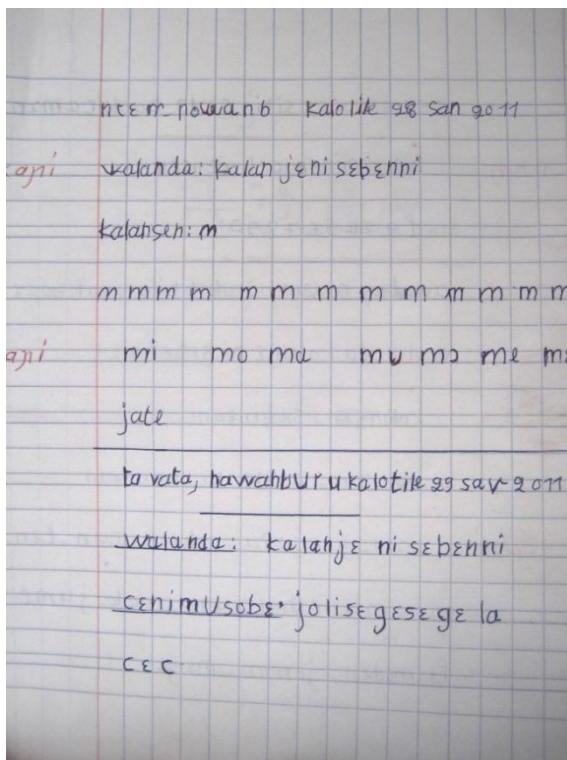 ntɛm nowanb kalo tile 28 san 2011
kalanda: kalan jɛni sɛbɛnni
kalansen: m
m m m m m m m m m m m m m
mi mo ma mu mɔ me m
jate
ta vata, hawahburu kalo tile 29 sav 2011
walanda: kalanjɛ ni sɛbɛnni
cɛnimusobɛ. joli sɛgɛsɛgɛ la
cɛc